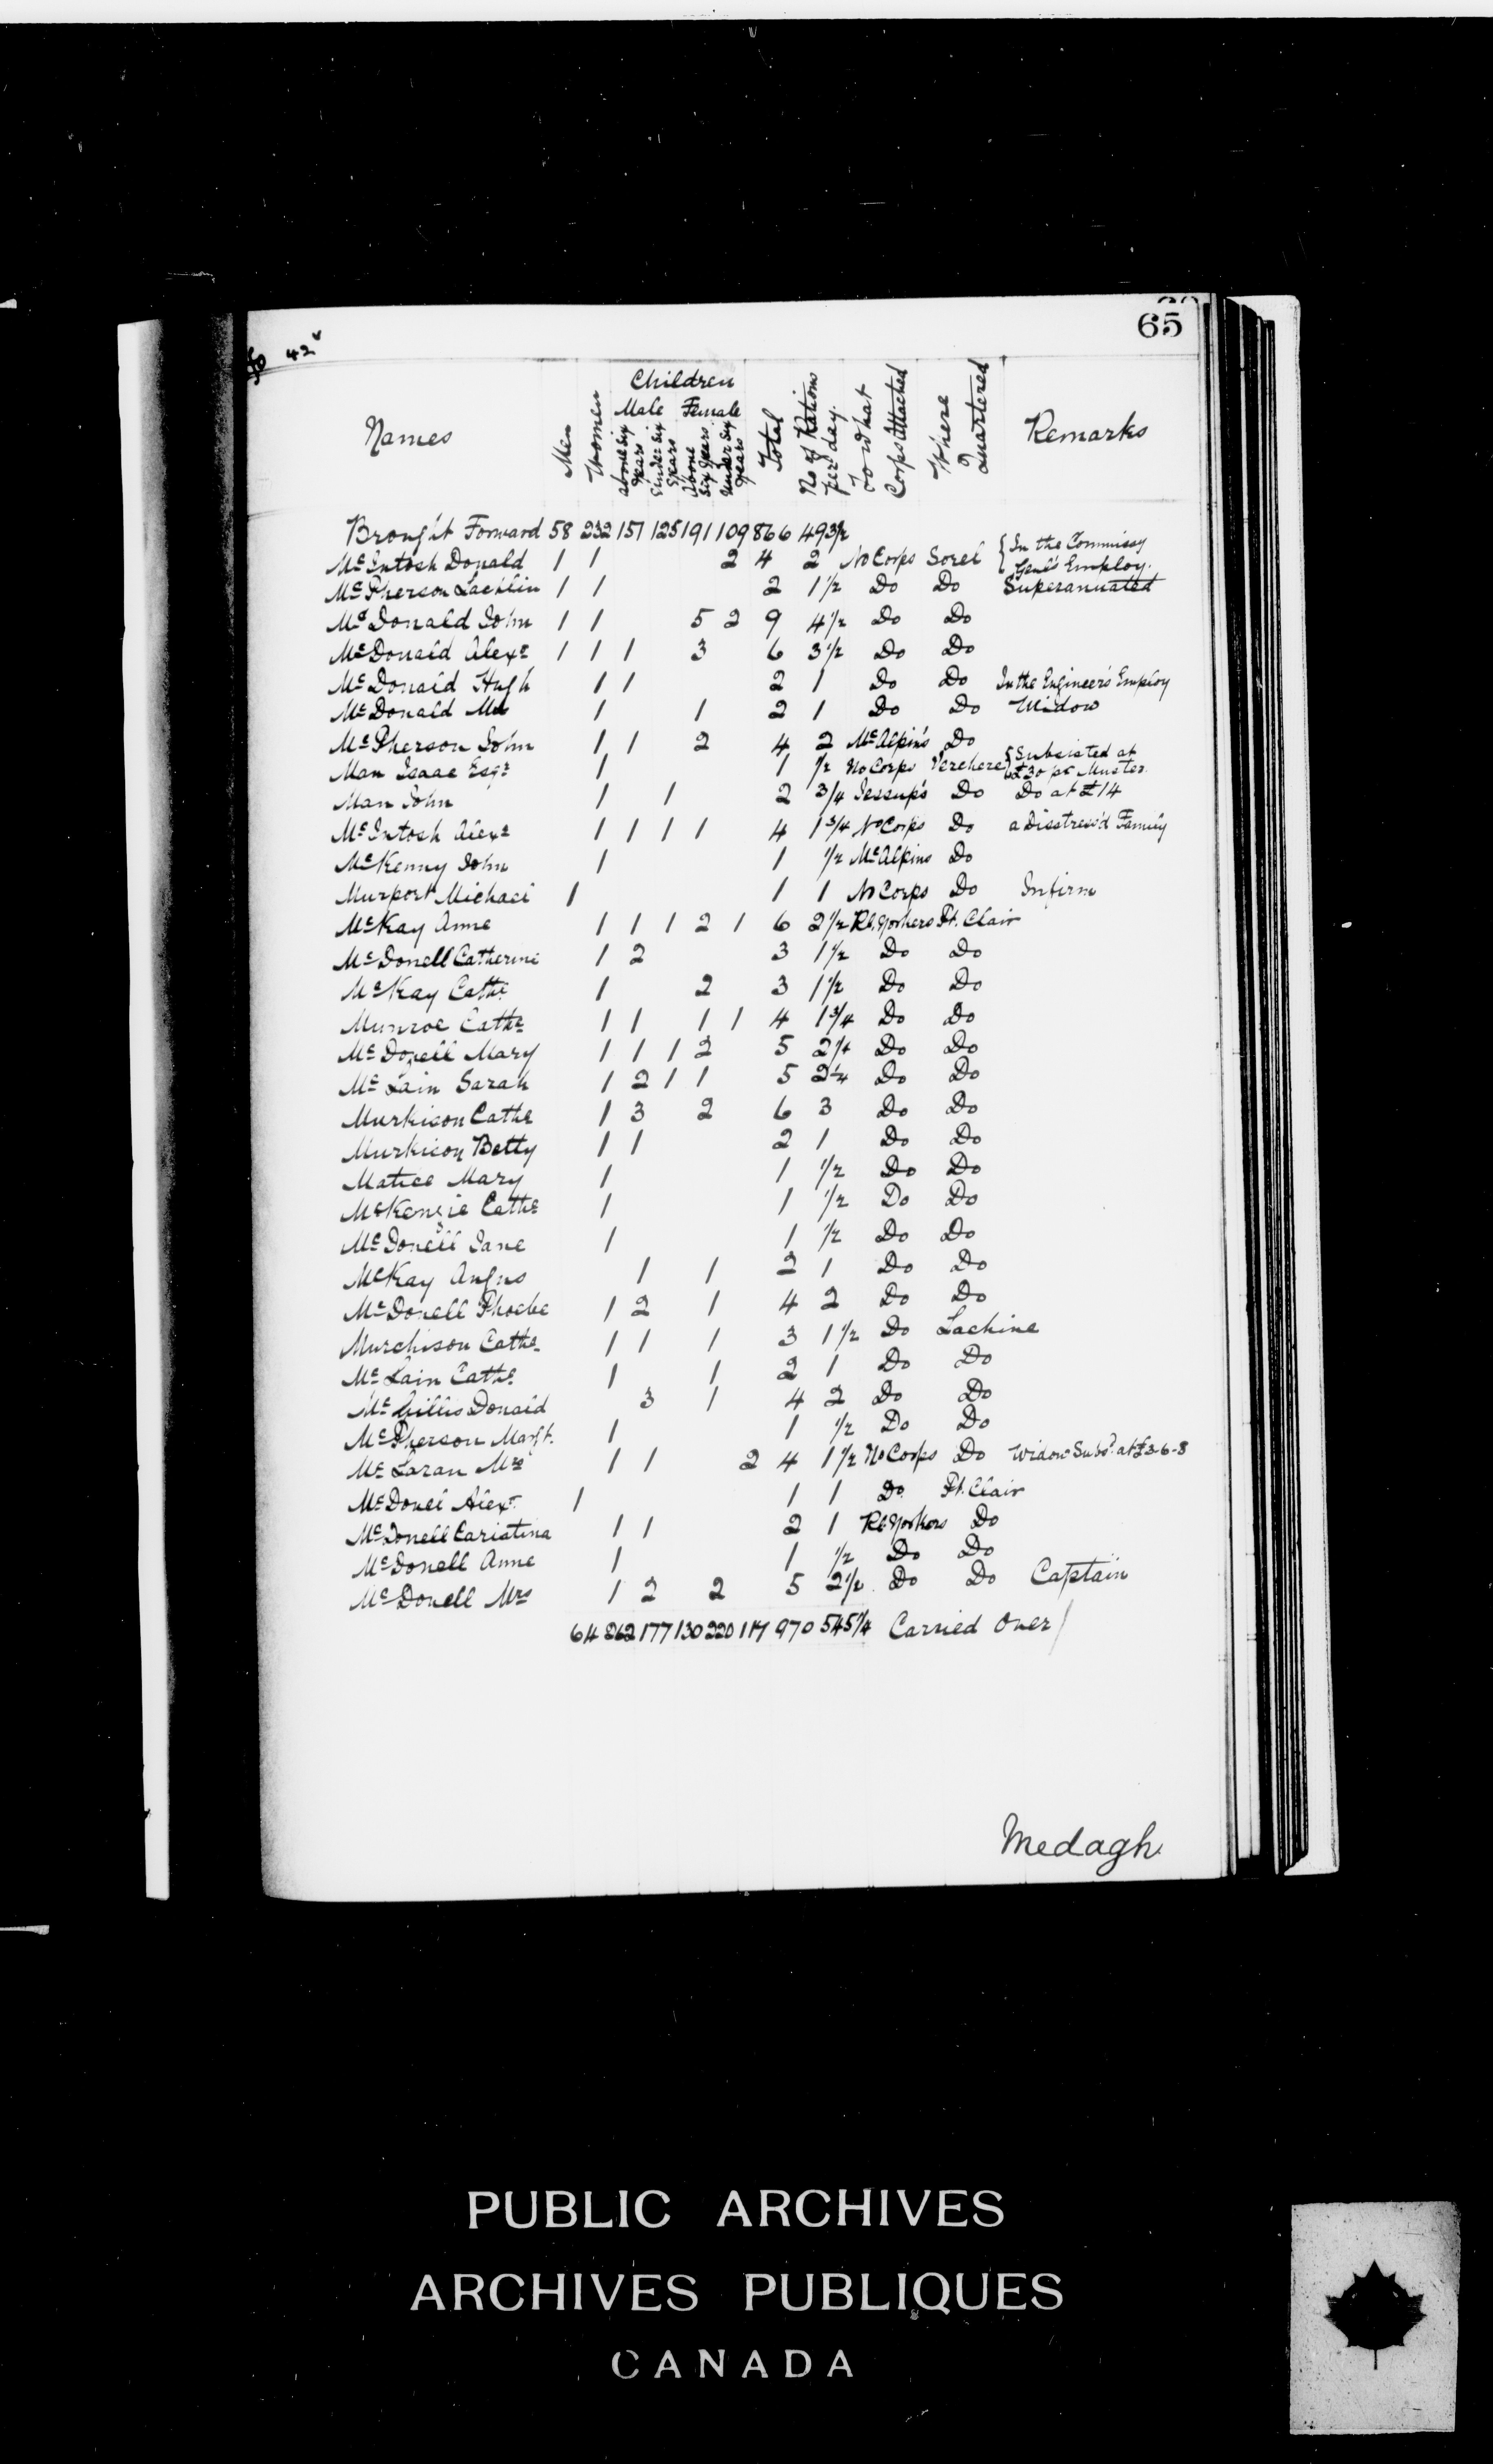 65
42
Names Men Women Children Male above six years Under six years Female Above six years Under six years Total No of Rations per day. To what Corps Attached Where Quartered Remarks
Brought Forward 58 232 151 125 191 109 866 493½
McIntosh Donald 1 1 2 4 2 No Corps Sorel {In the Commissy Genl's Employ.
McPherson Lachlin 1 1 2 1½ Do Do Superanuated
McDonald John 1 1 5 2 9 4½ Do Do
McDonald Alexr 1 1 1 3 6 3½ Do Do
McDonald Hugh 1 1 2 1 Do Do In the Engineer's Employ
McDonald 1 1 2 1 Do Do Widow
McPherson John 1 1 2 4 2 McAlpin's Do
Man Isaac Esqr 1 1 ½ No Corps Verchere {Subsisted at £30 pr Muster
Man John 1 1 2 3/4 Jessup's Do Do at £14
McIntosh Alexr 1 1 1 1 4 1 3/4 No Corps Do a Disstress'd Family
McKenny John 1 1 ½ McAlpins Do
Murport Michael 1 1 1 No Corps Do Infirm
McKay Anne 1 1 1 2 1 6 2½ Rl. Yorkers Pt. Clair
McDonell Catherine 1 2 3 1½ Do Do
McKay Cathe 1 2 3 1½ Do Do
Munroe Cathe 1 1 1 1 4 1 3/4 Do Do
McDonell Mary 1 1 1 2 5 2¼ Do Do
McLain Sarah 1 2 1 1 5 2¼ Do Do
Murkison Cathe 1 3 2 6 3 Do Do
Murkison Betty 1 1 2 1 Do Do
Matice Mary 1 1 ½ Do Do
McKenzie Cathe 1 1 ½ Do Do
McDonell Jane 1 1 ½ Do Do
McKay Angus 1 1 2 1 Do Do
McDonell Phoebe 1 2 1 4 2 Do Do
Murchison Cathe 1 1 1 3 1½ Do Lachine
McLain Cathe 1 1 2 1 Do Do
McGillis Donald 3 1 4 2 Do Do
McPherson Margt. 1 1 ½ Do Do
McLaran Mrs 1 1 2 4 1½ No Corps Do Widow Subsd. at £3-6-8
McDonel Alexr 1 1 1 Do Pt. Clair
McDonell Caristina 1 1 2 1 Rl. Yorkers Do
McDonell Anne 1 1 ½ Do Do
McDonell Mrs 1 2 2 5 2½ Do Do Captain
64 262 177 130 220 117 970 545¼ Carried Over/
Medagh
PUBLIC ARCHIVES
ARCHIVES PUBLIQUES
CANADA